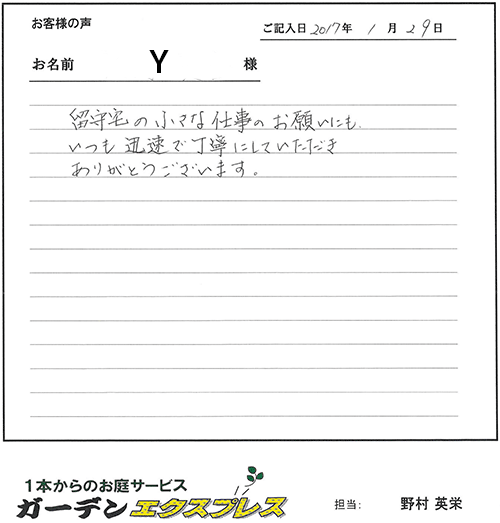 お客様の声
ご記入日 2017年 1月 29日
お名前 Y 様
留守宅の小さな仕事のお願いにも
いつも迅速で丁寧にしていただき
ありがとうございます。
1本からのお庭サービス
ガーデンエクスプレス
担当: 野村 英栄